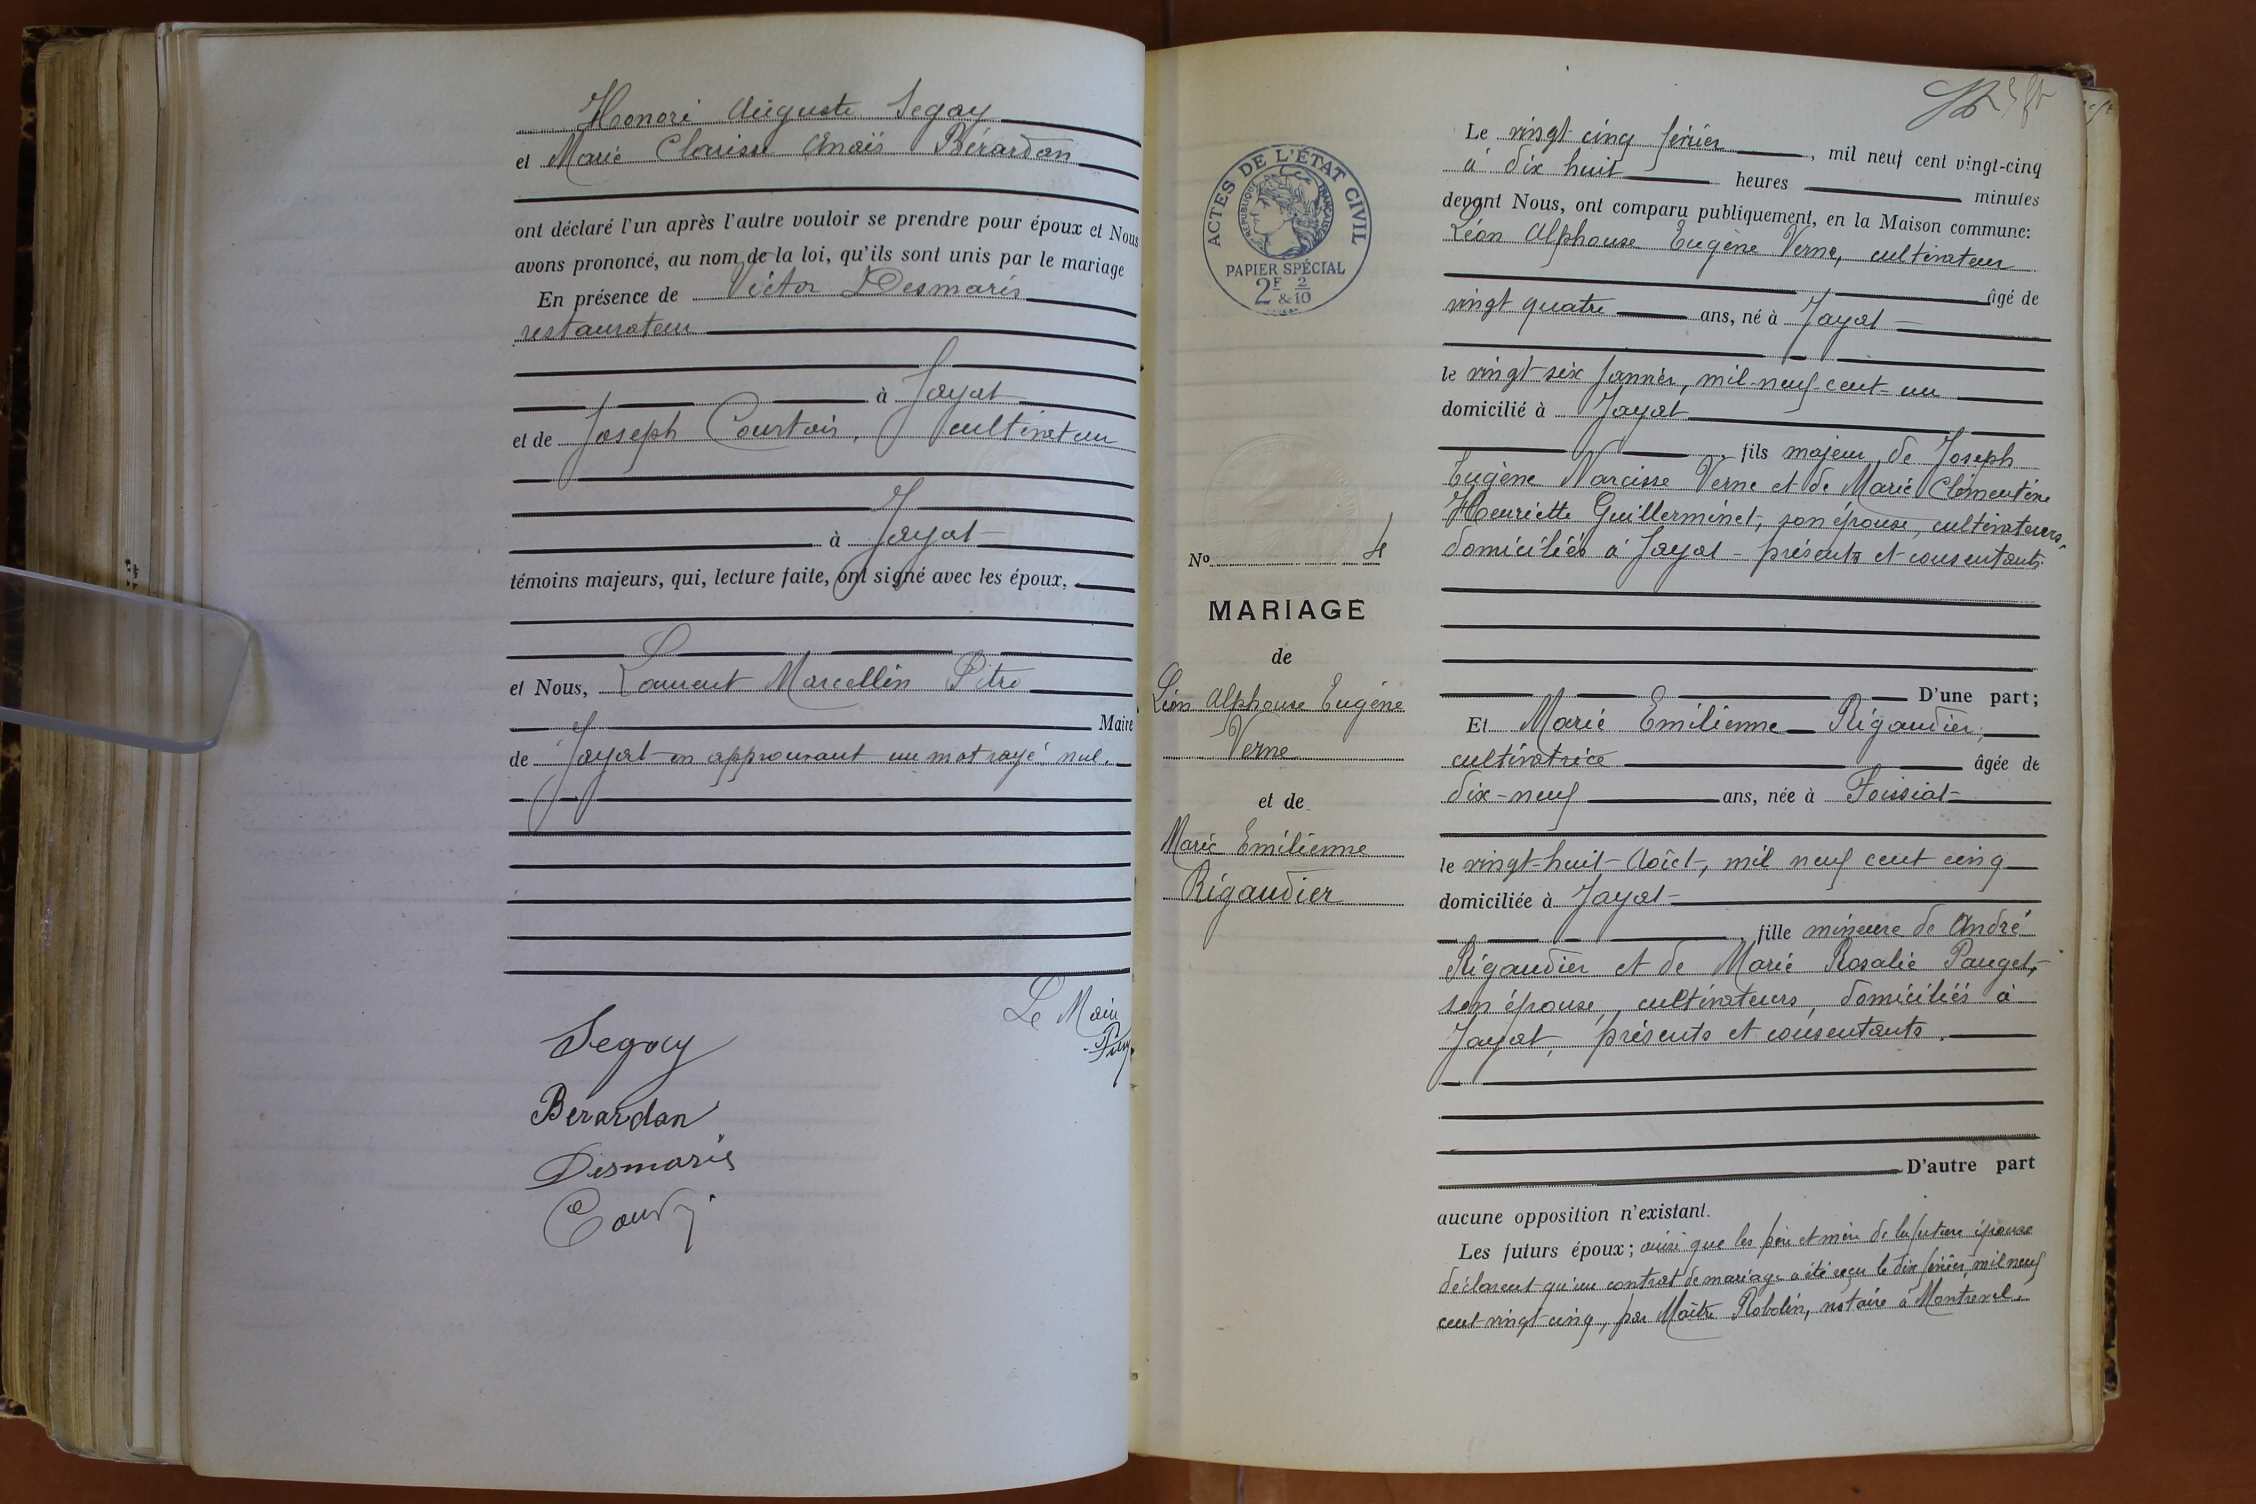 Honoré Auguste Segay
et Marie Clarisse Anaïs Bérardan
ont déclaré l'un après l'autre vouloir se prendre pour époux et Nous
avons prononcé, au nom de la loi, qu'ils sont unis par le mariage
En présence de Victor Desmaris
restaurateur
à Jayat
et de Joseph Courtois, cultivateur
à Jayat
témoins majeurs, qui, lecture faite, ont signé avec les époux,
et Nous, Laurent Marcellin Pitre
Maire
de Jayat en approuvant un mot rayé nul.
Le Maire
Segay
Berardan
Desmaris
ACTES DE L'ÉTAT CIVIL
RÉPUBLIQUE FRANÇAISE
PAPIER SPÉCIAL
2F & 2/10
No 4
MARIAGE
de
Léon Alphonse Eugène
Verne
et de
Marie Emilienne
Rigaudier
Le vingt cinq février, mil neuf cent vingt-cinq
à dix huit heures minutes
devant Nous, ont comparu publiquement, en la Maison commune:
Léon Alphonse Eugène Verne, cultivateur
âgé de
vingt quatre ans, né à Jayat
le vingt-six Janvier, mil-neuf-cent-un
domicilié à Jayat
fils majeur, de Joseph
Eugène Narcisse Verne et de Marie Clémentine
Henriette Guillerminet, son épouse, cultivateurs,
domiciliés à Jayat - présents et consentants.
D'une part;
Et Marie Emilienne Rigaudier,
cultivatrice âgée de
dix-neuf ans, née à Foissiat
le vingt-huit-Août, mil neuf cent cinq
domiciliée à Jayat
fille mineure de André
Rigaudier et de Marie Rosalie Pauget,
son épouse, cultivateurs, domiciliés à
Jayat, présents et consentants.
D'autre part
aucune opposition n'existant.
Les futurs époux; ainsi que les père et mère de la future épouse
déclarent qu'un contrat de mariage a été reçu le dix février, mil neuf
cent-vingt-cinq, par Maître Robolin, notaire à Montrevel.